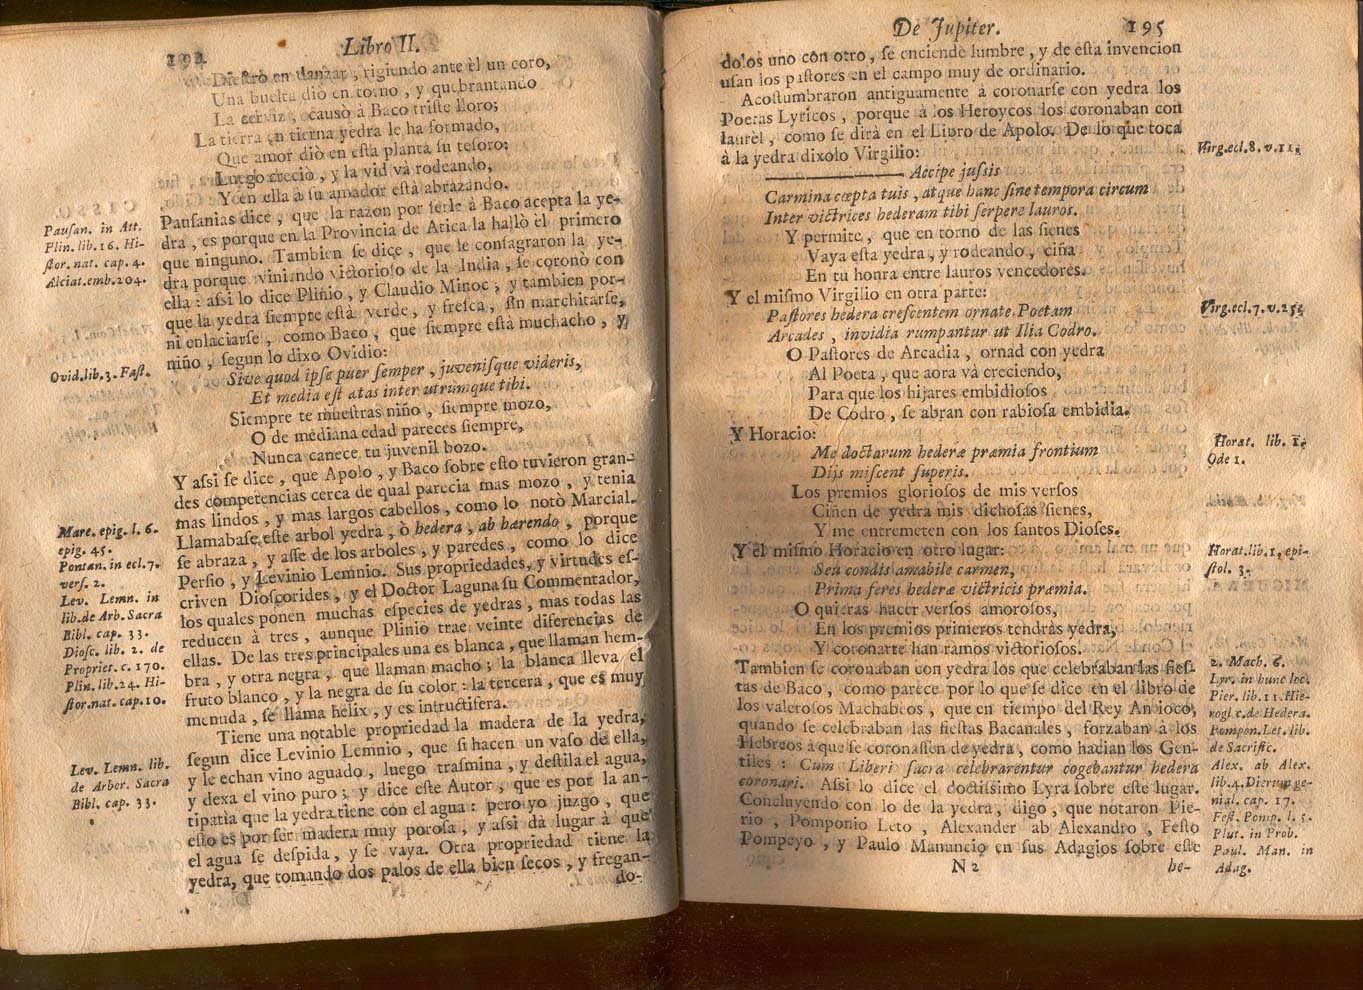 194
Libro II.
Diestro en danzar, rigiendo ante èl un coro,
Una buelta diò en torno, y quebrantando
La cerviz, causò à Baco triste lloro;
La tierra en tierna yedra le ha formado,
Que amor diò en esta planta su tesoro;
Luego creciò, y la vid và rodeando,
Y en ella à su amador està abrazando.
Pausanias dice, que la razon por serle à Baco acepta la ye-
dra, es porque en la Provincia de Atica la hallò el primero
que ninguno. Tambien se dice, que le consagraron la ye-
dra porque viniendo victorioso de la India, se coronò con
ella: assi lo dice Plinio, y Claudio Minoe; y tambien por-
que la yedra siempre està verde, y fresca, sin marchitarse,
ni enlaciarse, como Baco, que siempre està muchacho, y
niño, segun lo dixo Ovidio:
Sive quod ipse puer semper, juvenisque videris,
Et media est ætas inter utrumque tibi.
Siempre te muestras niño, siempre mozo,
O de mediana edad pareces siempre,
Nunca canece tu juvenil bozo.
Y assi se dice, que Apolo, y Baco sobre esto tuvieron gran-
des competencias cerca de qual parecia mas mozo, y tenia
mas lindos, y mas largos cabellos, como lo notò Marcial.
Llamabase este arbol yedra, ò hedera, ab hærendo, porque
se abraza, y asse de los arboles, y paredes, como lo dice
Persio, y Levinio Lemnio. Sus propriedades, y virtudes es-
criven Dioscorides, y el Doctor Laguna su Commentador,
los quales ponen muchas especies de yedras, mas todas las
reducen à tres, aunque Plinio trae veinte diferencias de
ellas. De las tres principales una es blanca, que llaman hem-
bra, y otra negra, que llaman macho; la blanca lleva el
fruto blanco, y la negra de su color: la tercera, que es muy
menuda, se llama helix, y es infructifera.
Tiene una notable propriedad la madera de la yedra,
segun dice Levinio Lemnio, que si hacen un vaso de ella,
y le echan vino aguado, luego trasmina, y destila el agua,
y dexa el vino puro; y dice este Autor, que es por la an-
tipatia que la yedra tiene con el agua: pero yo juzgo, que
esto es por ser madera muy porosa, y assi dà lugar à que
el agua se despida, y se vaya. Otra propriedad tiene la
yedra, que tomando dos palos de ella bien secos, y fregan-
do-
Pausan. in Att.
Plin. lib. 16. Hi-
stor. nat. cap. 4.
Alciat. emb. 204.
Ovid. lib. 3. Fast.
Marc. epig. l. 6.
epig. 45.
Pontan. in ecl. 7.
vers. 2.
Lev. Lemn. in
lib. de Arb. Sacra
Bibl. cap. 33.
Diosc. lib. 2. de
Propriet. c. 170.
Plin. lib. 24. Hi-
stor. nat. cap. 10.
Lev. Lemn. lib.
de Arbor. Sacra
Bibl. cap. 33.
De Jupiter.
195
dolos uno con otro, se enciende lumbre, y de esta invencion
usan los pastores en el campo muy de ordinario.
Acostumbraron antiguamente à coronarse con yedra los
Poetas Lyricos, porque à los Heroycos los coronaban con
laurèl, como se dirà en el Libro de Apolo. De lo que toca
à la yedra dixolo Virgilio:
Accipe jussis
Carmina cœpta tuis, atque hanc sine tempora circum
Inter victrices hederam tibi serpere lauros.
Y permite, que en torno de las sienes
Vaya esta yedra, y rodeando, ciña
En tu honra entre lauros vencedores.
Y el mismo Virgilio en otra parte:
Pastores hedera crescentem ornate Poetam
Arcades, invidia rumpantur ut Ilia Codro.
O Pastores de Arcadia, ornad con yedra
Al Poeta, que aora và creciendo,
Para que los hijares embidiosos
De Codro, se abran con rabiosa embidia.
Y Horacio:
Me doctarum hederæ præmia frontium
Dijs miscent superis.
Los premios gloriosos de mis versos
Ciñen de yedra mis dichosas sienes,
Y me entremeten con los santos Dioses.
Y el mismo Horacio en otro lugar:
Seu condis amabile carmen,
Prima feres hederæ victricis præmia.
O quieras hacer versos amorosos,
En los premios primeros tendràs yedra,
Y coronarte han ramos victoriosos.
Tambien se coronaban con yedra los que celebraban las fies-
tas de Baco, como parece por lo que se dice en el libro de
los valerosos Machabeos, que en tiempo del Rey Antioco,
quando se celebraban las fiestas Bacanales, forzaban à los
Hebreos à que se coronassen de yedra, como hacian los Gen-
tiles: Cum Liberi sacra celebrarentur cogebantur hedera
coronari. Assi lo dice el doctissimo Lyra sobre este lugar.
Concluyendo con lo de la yedra, digo, que notaron Pie-
rio, Pomponio Leto, Alexander ab Alexandro, Festo
Pompeyo, y Paulo Manuncio en sus Adagios sobre este
N 2
he-
Virg. ecl. 8. v. 11.
Virg. ecl. 7. v. 25.
Horat. lib. 1.
Ode 1.
Horat. lib. 1. epi-
stol. 3.
2. Mach. 6.
Lyr. in hunc loc.
Pier. lib. 11. Hie-
rogl. c. de Hedera.
Pompon. Let. lib.
de Sacrific.
Alex. ab Alex.
lib. 4. Dierum ge-
nial. cap. 17.
Fest. Pomp. l. 5.
Plut. in Prob.
Paul. Man. in
Adag.